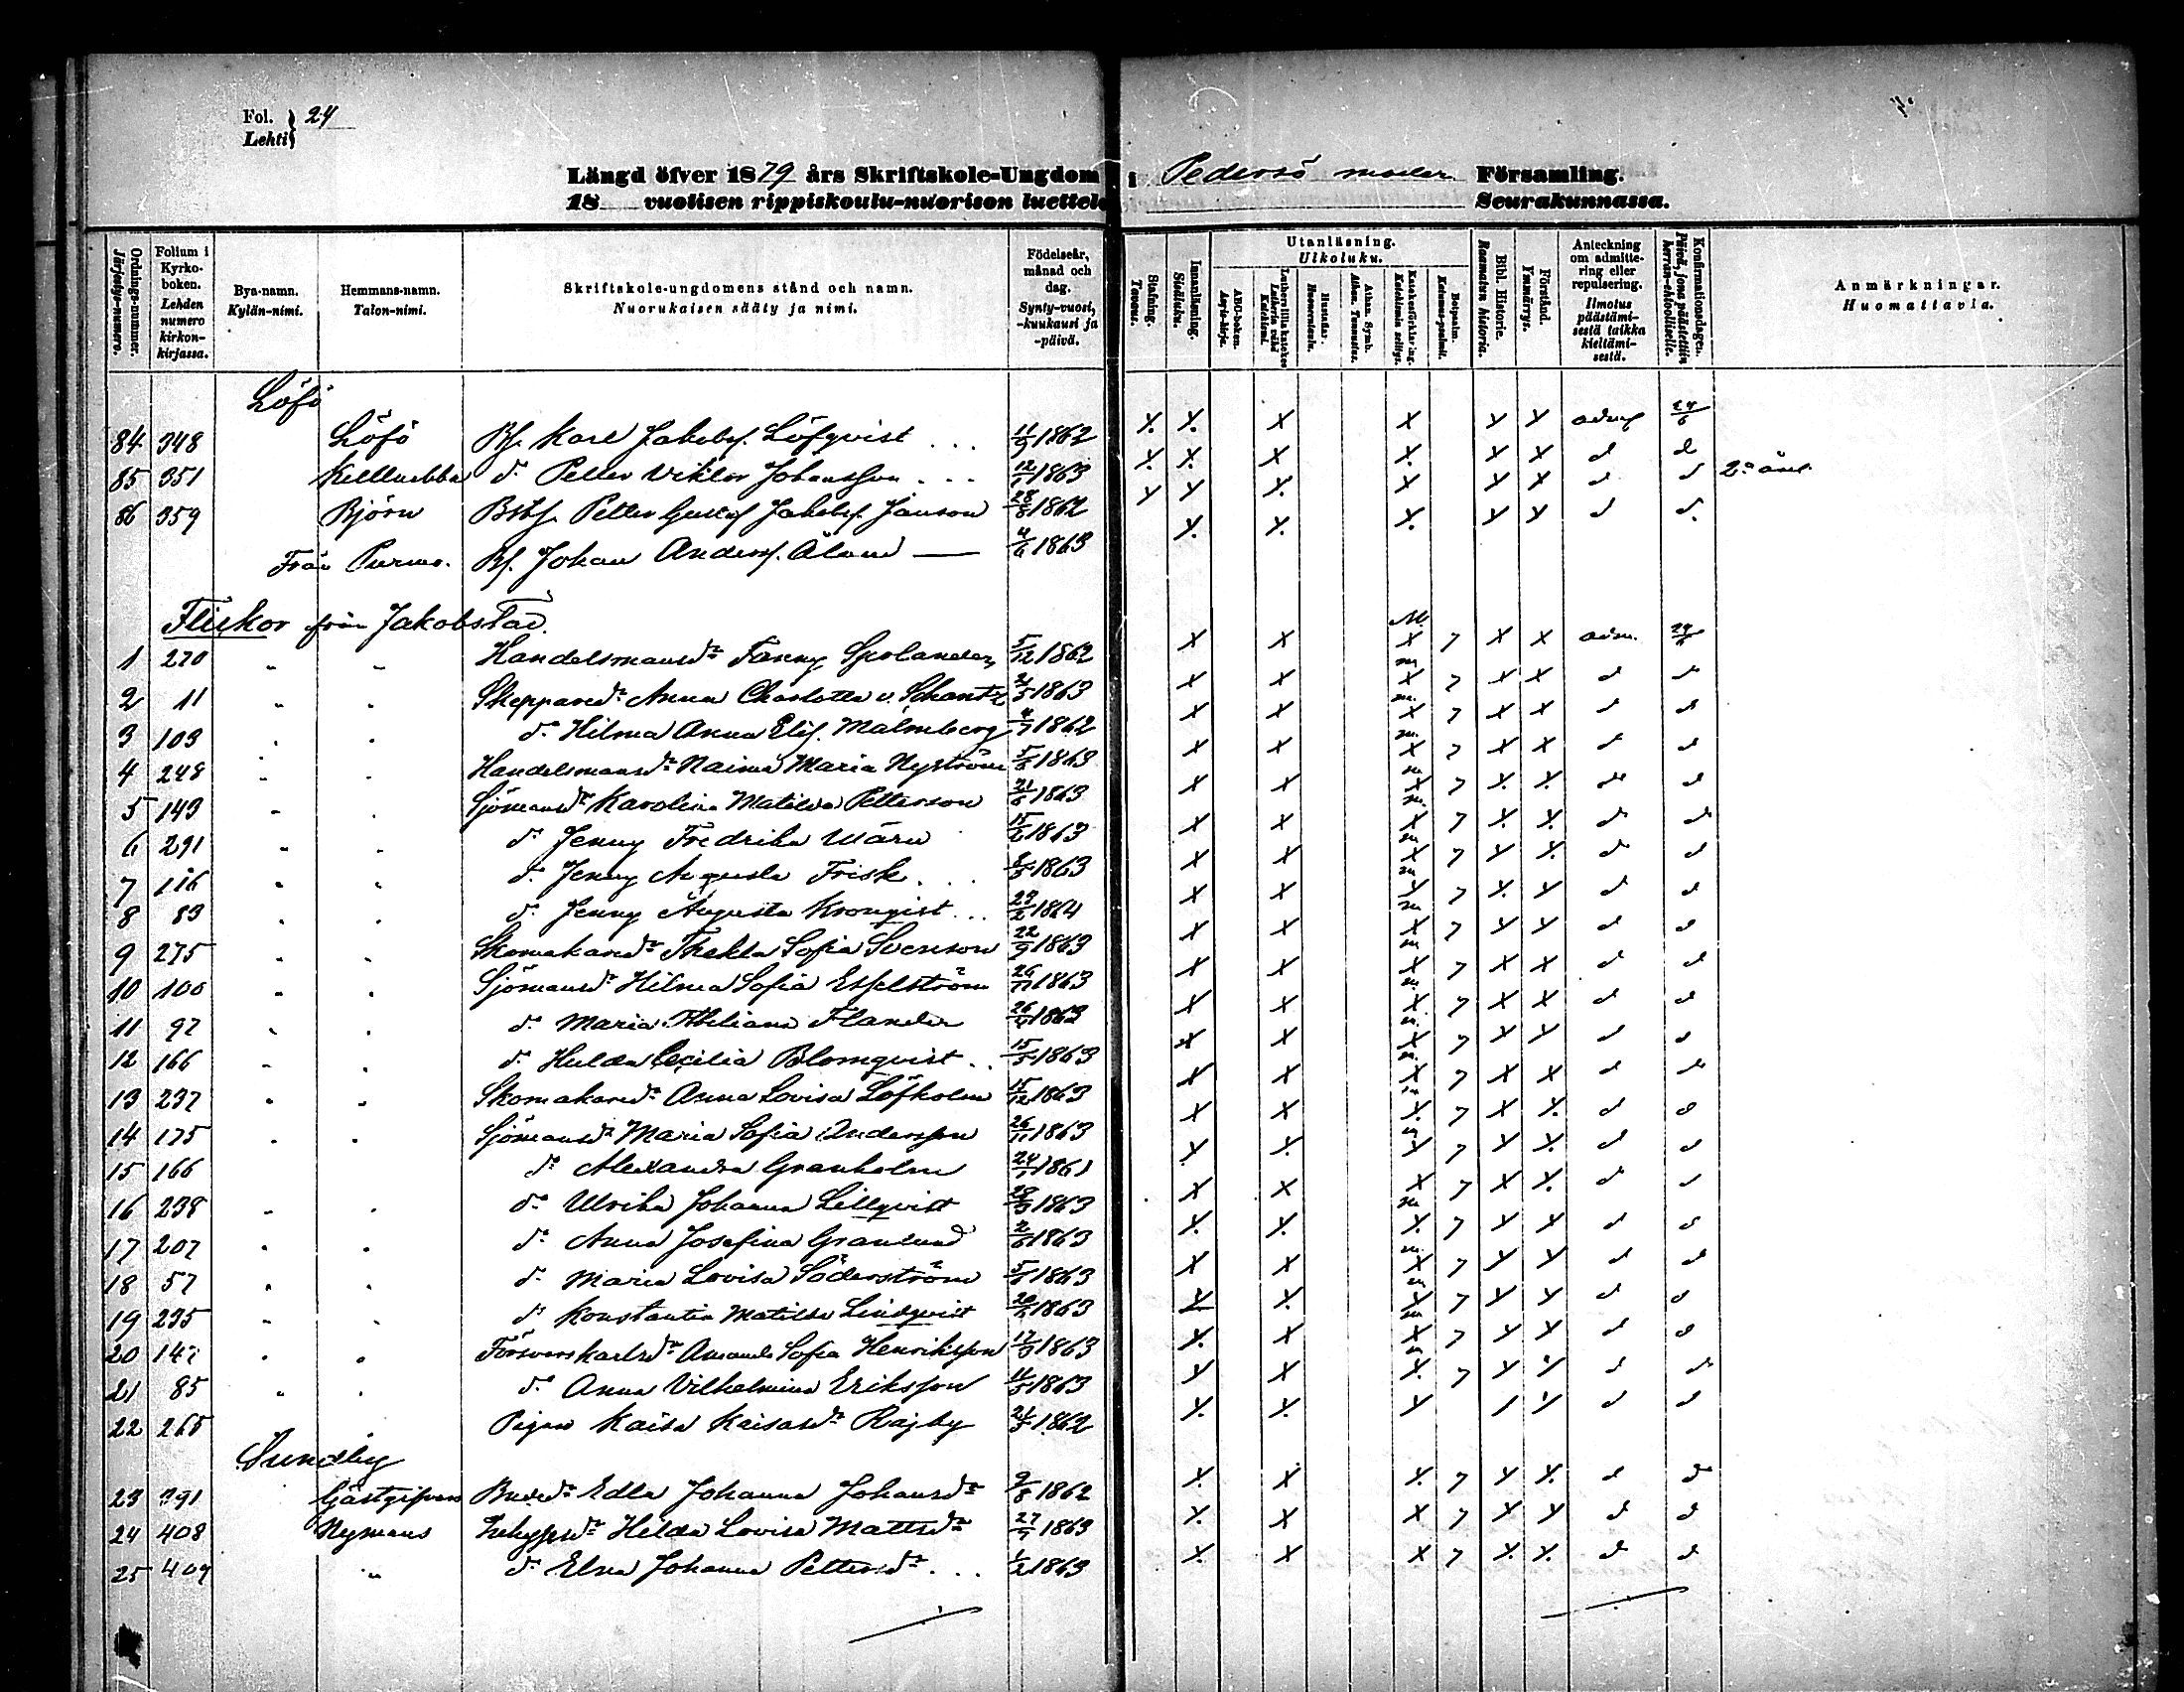 Fol. 24
Lehti
Längd öfver 1879 års Skriftskole-Ungdom i Pedersö moder Församling.
18 vuotisen rippiskoulu-nuorison luettelo Seurakunnassa.
Ordnings-nummer. Järjestys-numero.
Folium i Kyrko-boken. Lehden numero kirkon-kirjassa.
Bya-namn. Kylän-nimi.
Hemmans-namn. Talon-nimi.
Skriftskole-ungdomens stånd och namn. Nuorukaisen sääty ja nimi.
Födelseår, månad och dag. Synty-vuosi, -kuukausi ja -päivä.
Stafning. Tavaus.
Innanläsning. Sisäluku.
Utanläsning. Ulkoluku.
ABC-boken. Aapis-kirja.
Lutheri lilla katekes Lutherin vähä Katekismi.
Hustaflan. Huoneentaulu.
Athan. Symb. Athan. Tunnustus.
Katekesförklaring. Katekismin selitys.
Botpsalm. Katumus-psalmi.
Bibl. Historie. Raamatun historia.
Förstånd. Ymmärrys.
Anteckning om admittering eller repulsering. Ilmotus päästämisestä taikka kieltämisestä.
Konfirmationsdagen. Päivä, jona päästettiin herran-ehtoolliselle.
Anmärkningar. Huomattavia.
Löfö
84 348 Löfö Bs. Karl Jakobs. Löfqvist . . . 11/9 1862 X X X X X X adm 24/6
85 351 Källnabba d:o Petter Viktor Johansson . . . 1863 X X X X X X d d
86 359 Björn Petter Gustaf Jakobs. Janson 28/8 1862 X X X X X X d d 2:a
Från Purmo. Bs. Johan Anderss. Åland 1863 X X X X X d d
Flickor från Jakobstad.
1 270 " " Handelsmansd:r Fanny Spolander 5/12 1862 X X X 7 X X adm. 24/6
2 11 " " Skeppared:r Anna Charlotta v. Schantz 21/5 1863 X X X 7 X X d d
3 103 " " d:o Hilma Anna Elis. Malmberg 4/7 1862 X X X 7 X X d d
4 248 " " Handelsmansd:r Naima Maria Nyström 5/6 1863 X X X 7 X X d d
5 143 " " Sjömansd:r Karolina Matilda Petterson 21/6 1863 X X X 7 X X d d
6 291 " " d:o Jenny Fredrika Wärn 1863 X X X 7 X X d d
7 116 " " d:o Jenny Augusta Frisk . . . 1863 X X X 7 X X d d
8 83 " " d:o Jenny Augusta Kronqist . . . 23/2 1864 X X X 7 X X d d
9 275 " " Skomakared:r Thekla Sofia Svenson 22/9 1863 X X X 7 X X d d
10 100 " " Sjömansd:r Hilma Sofia Esselström 26/11 1863 X X X 7 X X d d
11 97 " " d:o Maria Flander 1863 X X X 7 X X d d
12 166 " " d:o Hulda Cecilia Blomqvist . . 15/5 1863 X X X 7 X X d d
13 237 " " Skomakared:r Anna Lovisa Löfholm 15/12 1863 X X X 7 X X d d
14 175 " " Sjömansd:r Maria Sofia Andersson 26/11 1863 X X X 7 X X d d
15 166 d:o Alexandra Granholm 24/1 1861 X X X 7 X X d d
16 238 " " d:o Ulrika Johanna Lillqvist 1863 X X X 7 X X d d
17 207 " " d:o Anna Josefina Granlund 2/6 1863 X X X 7 X X d d
18 57 " " d:o Maria Lovisa Söderström 1863 X X X 7 X X d d
19 295 " " d:o Konstantia Matilda Lindqvist 1863 X X X 7 X X d d
20 " " Försvarskarlsd:r Amanda Sofia Henriksson 1863 X X X 7 X X d d
21 85 " " d:o Anna Vilhelmina Eriksson 11/5 1863 X X X 7 X X d d
22 265 Pigan Kaisa Kaisasd:r Rajby 21/3 1862 X X X X d d
Sundby
23 391 Gästgifvars Bnd:r Edla Johanna Johansd:r 9/8 1862 X X X 7 X X d d
24 408 Nymans Hilda Lovisa Mattsd:r 27/7 1863 X X X 7 X X d d
25 409 " d:o Elna Johanna Pettersd:r . . . 1/2 1863 X X X 7 X X d d